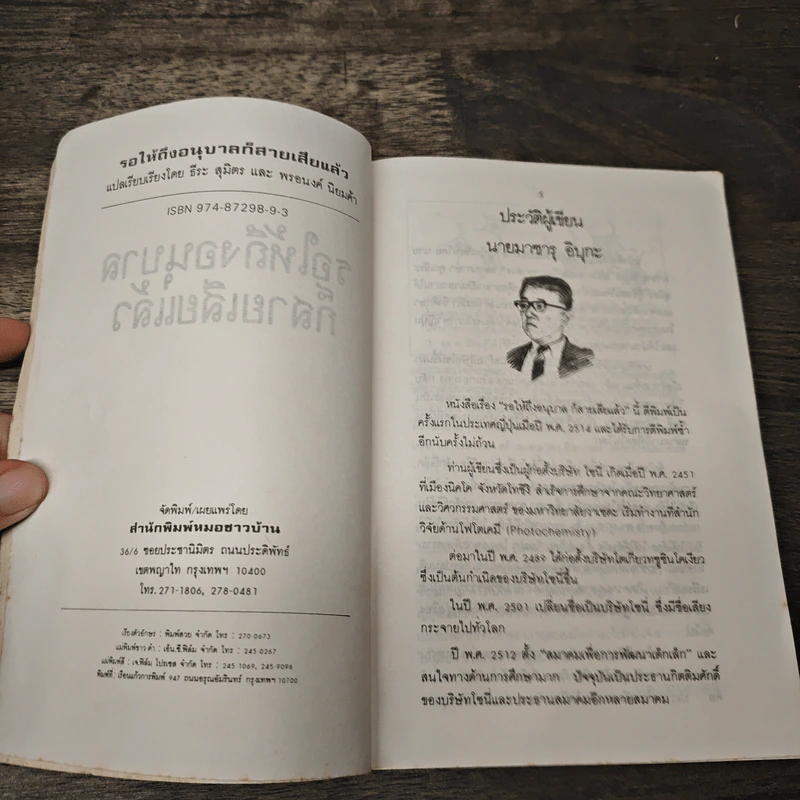 รอให้ถึงอนุบาลก็สายเสียแล้ว
แปลเรียบเรียงโดย ธีระ สุมิตร และ พรอนงค์ นิยมค้า
ISBN 974-87298-9-3
จัดพิมพ์/เผยแพร่โดย
สำนักพิมพ์หมอชาวบ้าน
36/6 ซอยประชานิมิตร ถนนประดิพัทธ์
เขตพญาไท กรุงเทพฯ 10400
โทร. 271-1806, 278-0481
เรียงตัวอักษร : พิมพ์สวย จำกัด โทร : 270 0673
แม่พิมพ์ขาว ดำ : เอ็น.ซี.ฟิล์ม จำกัด โทร : 245 0267
แม่พิมพ์สี : เจ.ฟิล์ม โปรเซส จำกัด โทร : 245 1069, 245-9096
พิมพ์ที่ : เรือนแก้วการพิมพ์ 947 ถนนอรุณอัมรินทร์ กรุงเทพฯ 10700
ประวัติผู้เขียน
นายมาซารุ อิบุกะ
หนังสือเรื่อง "รอให้ถึงอนุบาล ก็สายเสียแล้ว" นี้ ตีพิมพ์เป็น
ครั้งแรกในประเทศญี่ปุ่นเมื่อปี พ.ศ. 2514 และได้รับการตีพิมพ์ซ้ำ
อีกนับครั้งไม่ถ้วน
ท่านผู้เขียนซึ่งเป็นผู้ก่อตั้งบริษัท โซนี่ เกิดเมื่อปี พ.ศ. 2451
ที่เมืองนิคโค จังหวัดโทชิงิ สำเร็จการศึกษาจากคณะวิทยาศาสตร์
และวิศวกรรมศาสตร์ ของมหาวิทยาลัยวาเซดะ เริ่มทำงานที่สำนัก
วิจัยด้านโฟโตเคมี (Photochemisty)
ต่อมาในปี พ.ศ. 2489 ได้ก่อตั้งบริษัทโตเกียวทซูชินโคเงียว
ซึ่งเป็นต้นกำเนิดของบริษัทโซนี่ขึ้น
ในปี พ.ศ. 2501 เปลี่ยนชื่อเป็นบริษัทโซนี่ ซึ่งมีชื่อเสียง
กระจายไปทั่วโลก
ปี พ.ศ. 2512 ตั้ง "สมาคมเพื่อการพัฒนาเด็กเล็ก" และ
สนใจทางด้านการศึกษามาก ปัจจุบันเป็นประธานกิตติมศักดิ์
ของบริษัทโซนี่และประธานสมาคมอีกหลายสมาคม